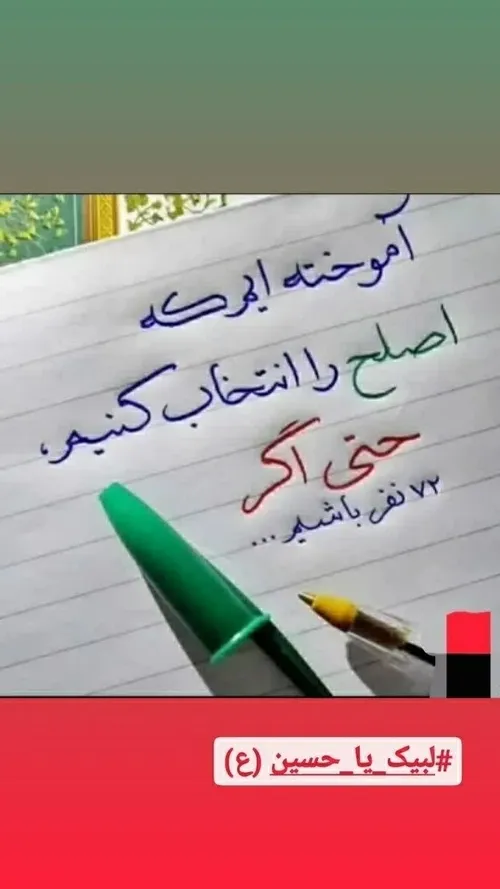 آموخته ایم که
اصلح را انتخاب کنیم،
حتی اگر
۷۲ نفر باشیم...
#لبیک_یا_حسین (ع)